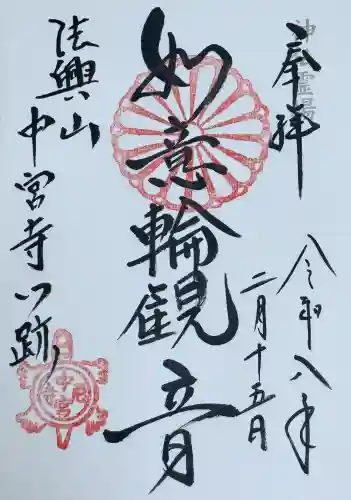 奉拝
令和八年
二月十五日
如意輪観音
法興山
中宮寺門跡
中宮尼寺